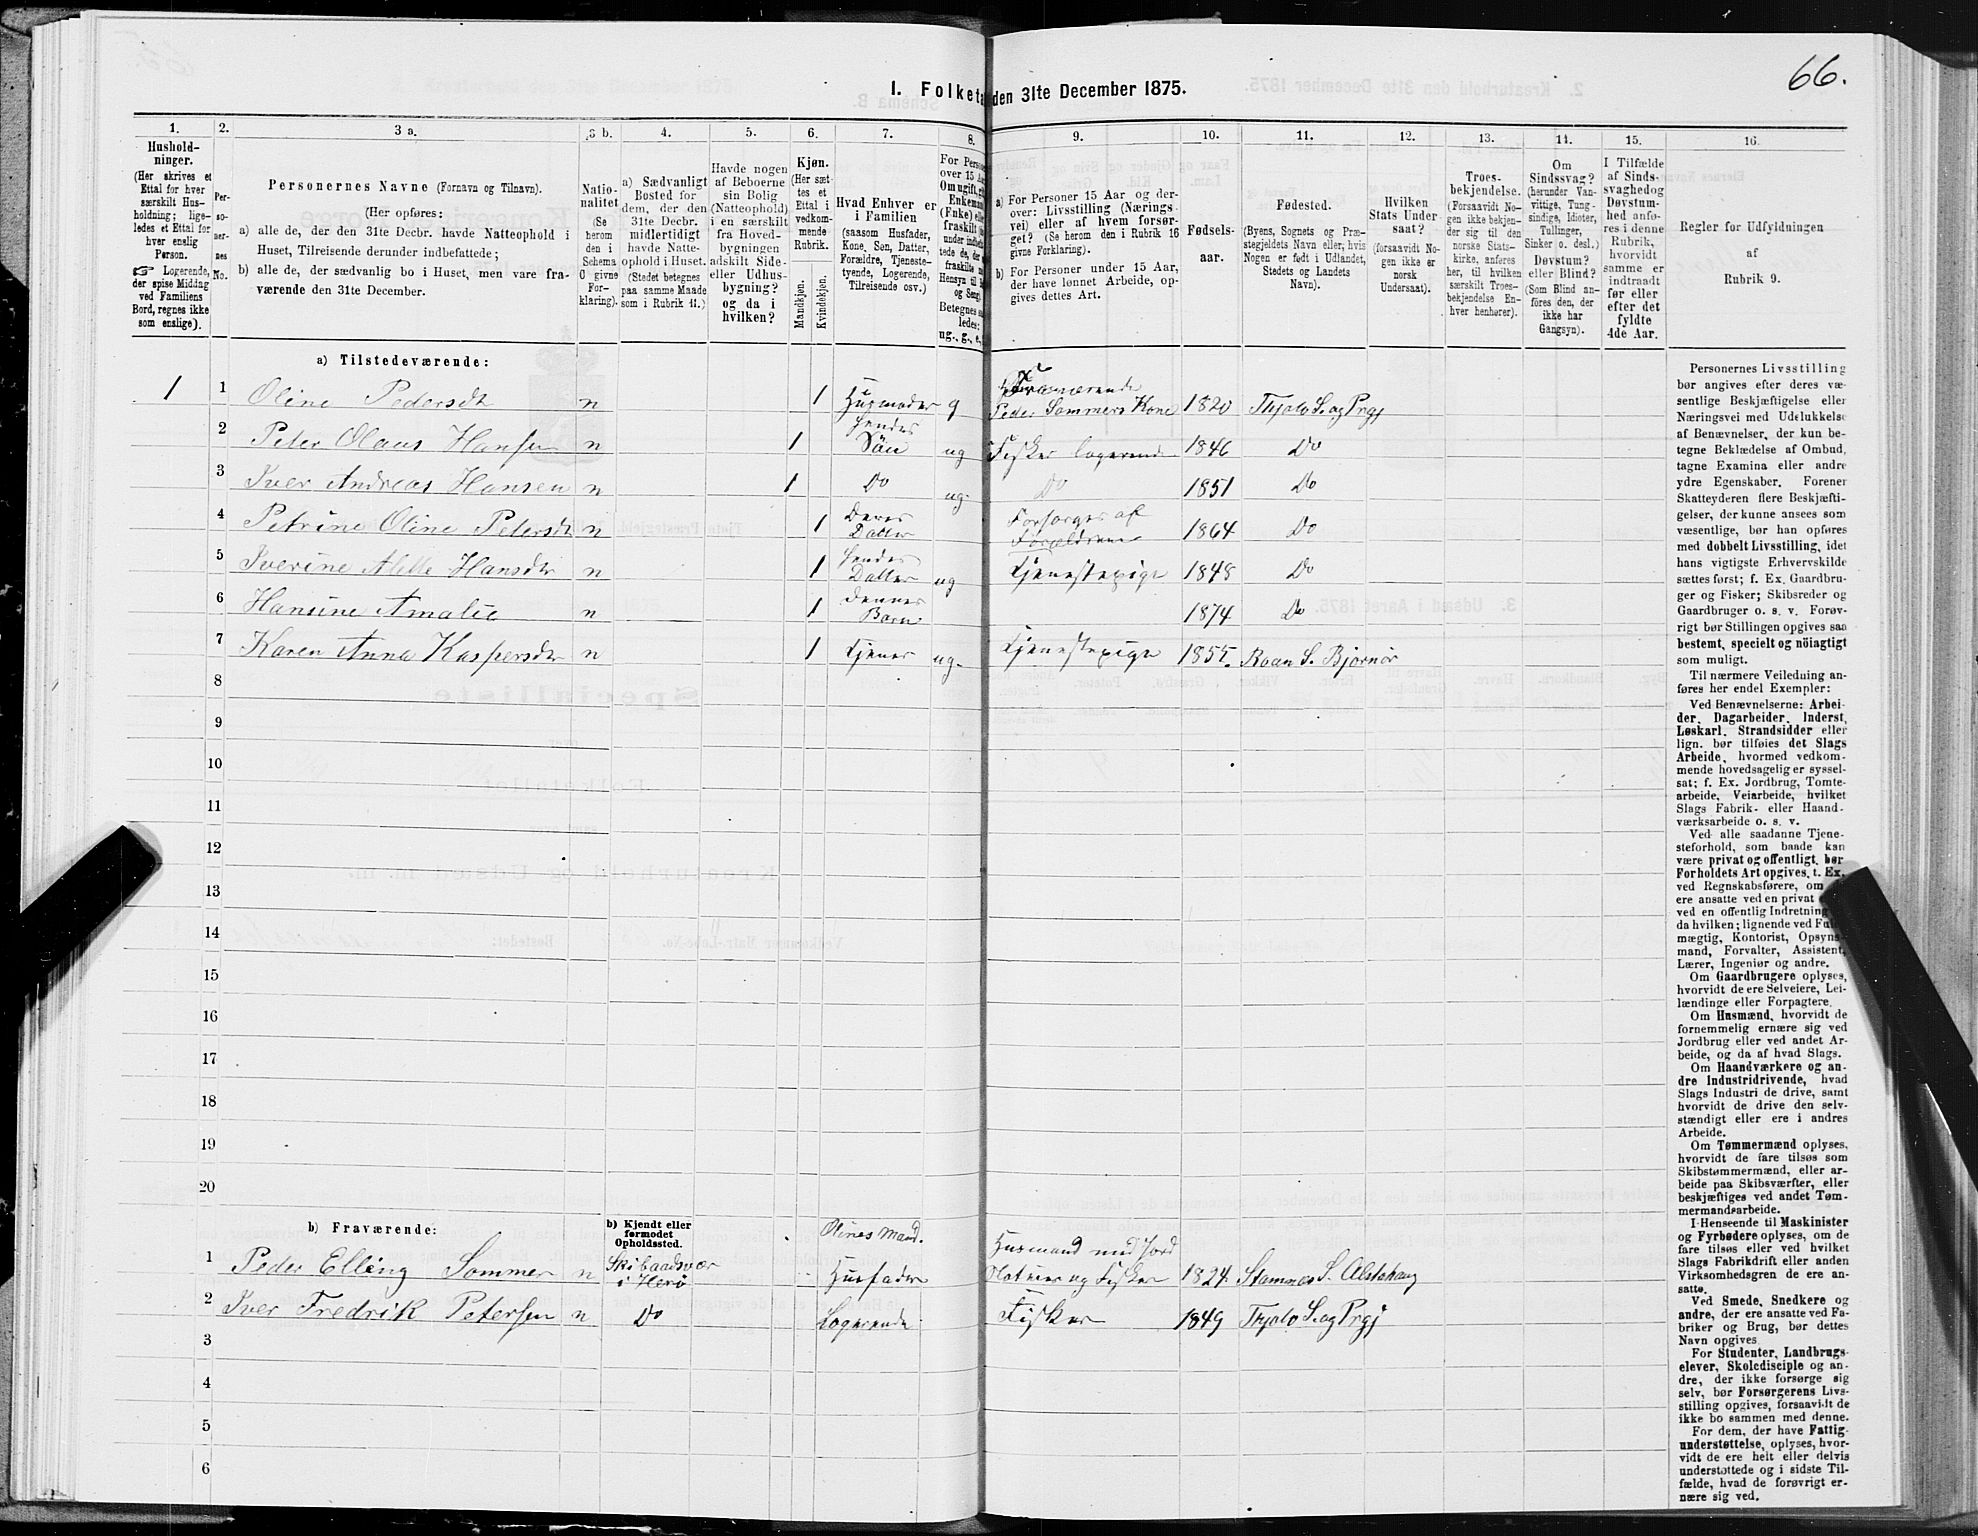 66.
I. Folketa den 31te December 1875.
1. 2. 3 a. 3 b. 4. 5. 6. 7. 8. 9. 10. 11. 12. 13. 14. 15. 16.
Hushold-
ninger.
(Her skrives et
Ettal for hver
særskilt Hus-
holdning; lige-
ledes et Ettal for
hver enslig
Person.
☞ Logerende,
der spise Middag
ved Familiens
Bord, regnes ikke
som enslige).
Per-
so-
ner-
nes
No.
Personernes Navne (Fornavn og Tilnavn).
(Her opføres:
a) alle de, der den 31te Decbr. havde Natteophold i
Huset, Tilreisende derunder indbefattede;
b) alle de, der sædvanlig bo i Huset, men vare fra-
værende den 31te December.
Natio-
nalitet
(Se
herom
den i
Schema
O givne
For-
klaring).
a) Sædvanligt
Bosted for
dem, der den
31te Decbr.
midlertidigt
havde Natte-
ophold i Huset.
(Stedet betegnes
paa samme Maade
som i Rubrik 11.)
Havde nogen
af Beboerne
sin Bolig
(Natteophold)
i en særskilt
fra Hoved-
bygningen
adskilt Side-
eller Udhus-
bygning?
og da i
hvilken?
Kjøn.
(Her sæt-
tes et
Ettal i
vedkom-
mende
Rubrik.
Mandkjøn.
Kvindekjøn.
Hvad Enhver er
i Familien
(saasom Husfader,
Kone, Søn, Datter,
Forældre, Tjeneste-
tyende, Logerende,
Tilreisende osv.)
For Person
over 15 Aar
Om ugift, g
Enkeman
(Fnke) elle
fraskilt
Betegnes s
ledes:
ug., g., e.,
a) For Personer 15 Aar og der-
over: Livsstilling (Nærings-
vei) eller af hvem forsør-
get? (Se herom den i Rubrik 16
givne Forklaring).
b) For Personer under 15 Aar,
der have lønnet Arbeide, op-
gives dettes Art.
Fødsels-
aar.
Fødested.
(Byens, Sognets og Præ-
stegjeldets Navn eller, hvis
Nogen er født i Udlandet,
Stedets og Landets
Navn).
Hvilken
Stats Under-
saat?
(forsaavidt No-
gen ikke er
norsk
Undersaat).
Troes-
bekjendelse.
(Forsaavidt No-
gen ikke bekjen-
der sig til den
norske Stats-
kirke, anføres
her, til hvilken
særskilt Troes-
bekjendelse En-
hver henhører).
Om
Sindssvag?
(herunder Van-
vittige, Tung-
sindige, Idioter,
Tullinger,
Sinker o. desl.)
Døvstum?
eller Blind?
(Som Blind an-
føres den, der
ikke har
Gangsyn).
I Tilfælde
af Sinds-
svaghed og
Døvstum-
hed anfø-
res i denne
Rubrik,
hvorvidt
samme er
indtraadt
før eller
efter det
fyldte
4de Aar.
Regler for Udfyldningen
af
Rubrik 9.
a) Tilstedeværende:
1 1 Oline Pedersdt n 1 Husmoder g Fraværende Peder Sommers Kone 1820 Thjotø S. og Prgj
2 Peter Olaus Hansen n 1 hendes Sön ug Fisker logerende 1846 Do
3 Iver Andreas Hansen n 1 Do ug. Do 1851 Do
4 Petrine Oline Petersdt n 1 Deres Datter Forsørges af Forældrene 1864 Do
5 Iverine Hansdtr n 1 hendes Datter ug Tjenestepige 1848 Do
6 Hansine Amalie n 1 Dennes Barn 1874 Do
7 Karen Anna Kaspersdtr n 1 Tjener ug. Tjenestepige 1855. Roan S. Bjørnør
8
9
10
11
12
13
14
15
16
17
18
19
20
b) Fraværende:
b) Kjendt eller
formodet
Opholdssted.
1 Peder Elling Sommer n Skibaadsvær i Herö Olines Mand. Husfader Husmand med Jord Notuier og Fisker 1824 Stamnes S. Alstahaug
2 Iver Fredrik Petersen n Do Logerende Fisker 1849 Thjotø S. og Prgj
3
4
5
6
Personernes Livsstilling
bør angives efter deres væ-
sentlige Beskjæftigelse eller
Næringsvei med Udelukkelse
af Benævnelser, der kun be-
tegne Beklædelse af Ombud,
tagne Examina eller andre
ydre Egenskaber. Forener
Skatteyderen flere Beskjæfti-
gelser, der kunne ansees som
væsentlige, bør han opføres
med dobbelt Livsstilling, idet
hans vigtigste Erhvervskilde
sættes først; f. Ex. Gaardbru-
ger og Fisker; Skibsreder og
Gaardbruger o. s. v. Forøv-
rigt bør Stillingen opgives saa
bestemt, specielt og nöiagtigt
som muligt.
Til nærmere Veiledning an-
føres her endel Exempler:
Ved Benævnelserne: Arbei-
der, Dagarbeider, Inderst,
Løskarl, Strandsidder eller
lign. bør tilføies det Slags
Arbeide, hvormed vedkom-
mende hovedsagelig er syssel-
sat; f. Ex. Jordbrug, Tomte-
arbeide, Veiarbeide, hvilket
Slags Fabrik- eller Haand-
værksarbeide o. s. v.
Ved alle saadanne Tjene-
steforhold, som baade kan
være privat og offentligt, bør
Forholdets Art opgives, t. Ex.
ved Regnskabsførere, om
ere ansatte ved en privat
ved en offentlig Indretning
da hvilken; lignende ved Ful
mægtig, Kontorist, Opsyns-
mand, Forvalter, Assistent,
Lærer, Ingeniør og andre.
Om Gaardbrugere oplyses,
hvorvidt de ere Selveiere, Lei-
lændinge eller Forpagtere.
Om Husmænd, hvorvidt de
fornemmelig ernære sig ved
Jordbrug eller ved andet Ar-
beide, og da af hvad Slags.
Om Haandværkere og an-
dre Industridrivende, hvad
Slags Industri de drive, samt
hvorvidt de drive den selv-
stændigt eller ere i andres
Arbeide.
Om Tømmermænd oplyses,
hvorvidt de fare tilsøs som
Skibstømmermænd, eller ar-
beide paa Skibsværfter, eller
beskjæftiges ved andet Tøm-
mermandsarbeide.
I Henseende til Maskinister
og Fyrbødere oplyses, om de
fare tilsøs eller ved hvilket
Slags Fabrikdrift eller anden
Virksomhedsgren de ere an-
satte.
Ved Smede, Snedkere og
andre, der ere ansatte ved Fa-
briker og Brug, bør dettes
Navn opgives.
For Studenter, Landbrugs-
elever, Skoledisciple og an-
dre, der ikke forsørge sig
selv, bør Forsørgerens Livs-
stilling opgives, forsaavidt de
ikke bo sammen med denne.
For dem, der have Fattig-
understøttelse, oplyses, hvor-
vidt de ere helt eller delvis
understøttede og i sidste Til-
fælde, hvad de forøvrigt er-
nære sig ved.